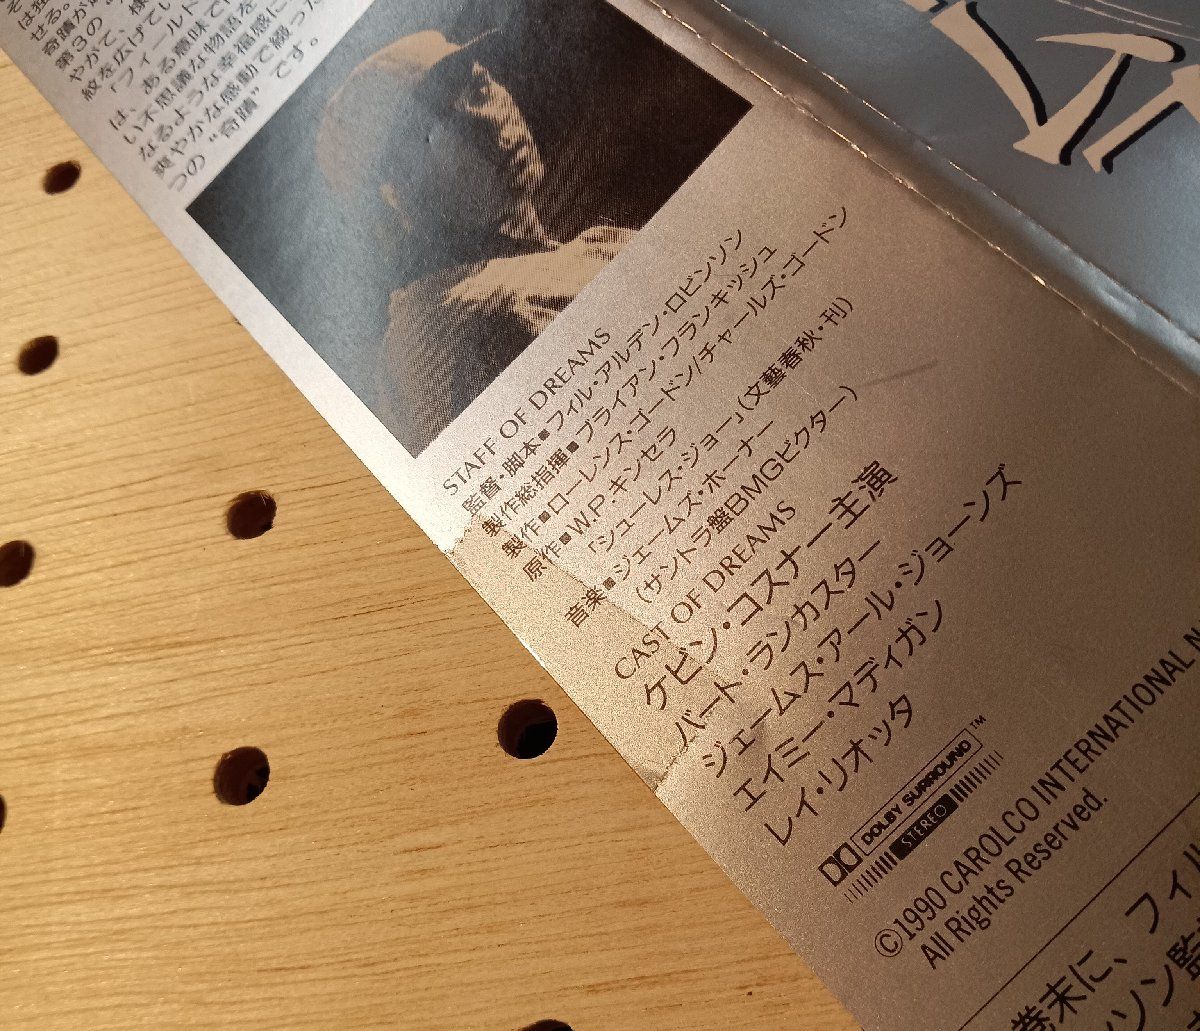 せる。
奇蹟が
第3の
やがて、
紋を広げてい
「フィールド
は、ある意味で
い不思議な物語を
なるような幸福感に
爽やかな感動で綴った
つの“奇蹟”です。
STAFF OF DREAMS
監督・脚本■フィル・アルデン・ロビンソン
製作総指揮■ブライアン・フランキッシュ
製作■ローレンス・ゴードン/チャールズ・ゴードン
原作■W.P.キンセラ
「シューレス・ジョー」(文藝春秋・刊)
音楽■ジェームズ・ホーナー
(サントラ盤BMGビクター)
CAST OF DREAMS
ケビン・コスナー主演
バート・ランカスター
ジェームス・アール・ジョーンズ
エイミー・マディガン
レイ・リオッタ
DOLBY SURROUND™
STEREO
©1990 CAROLCO INTERNATIONAL N
All Rights Reserved.
巻末に、フィル
ソン監